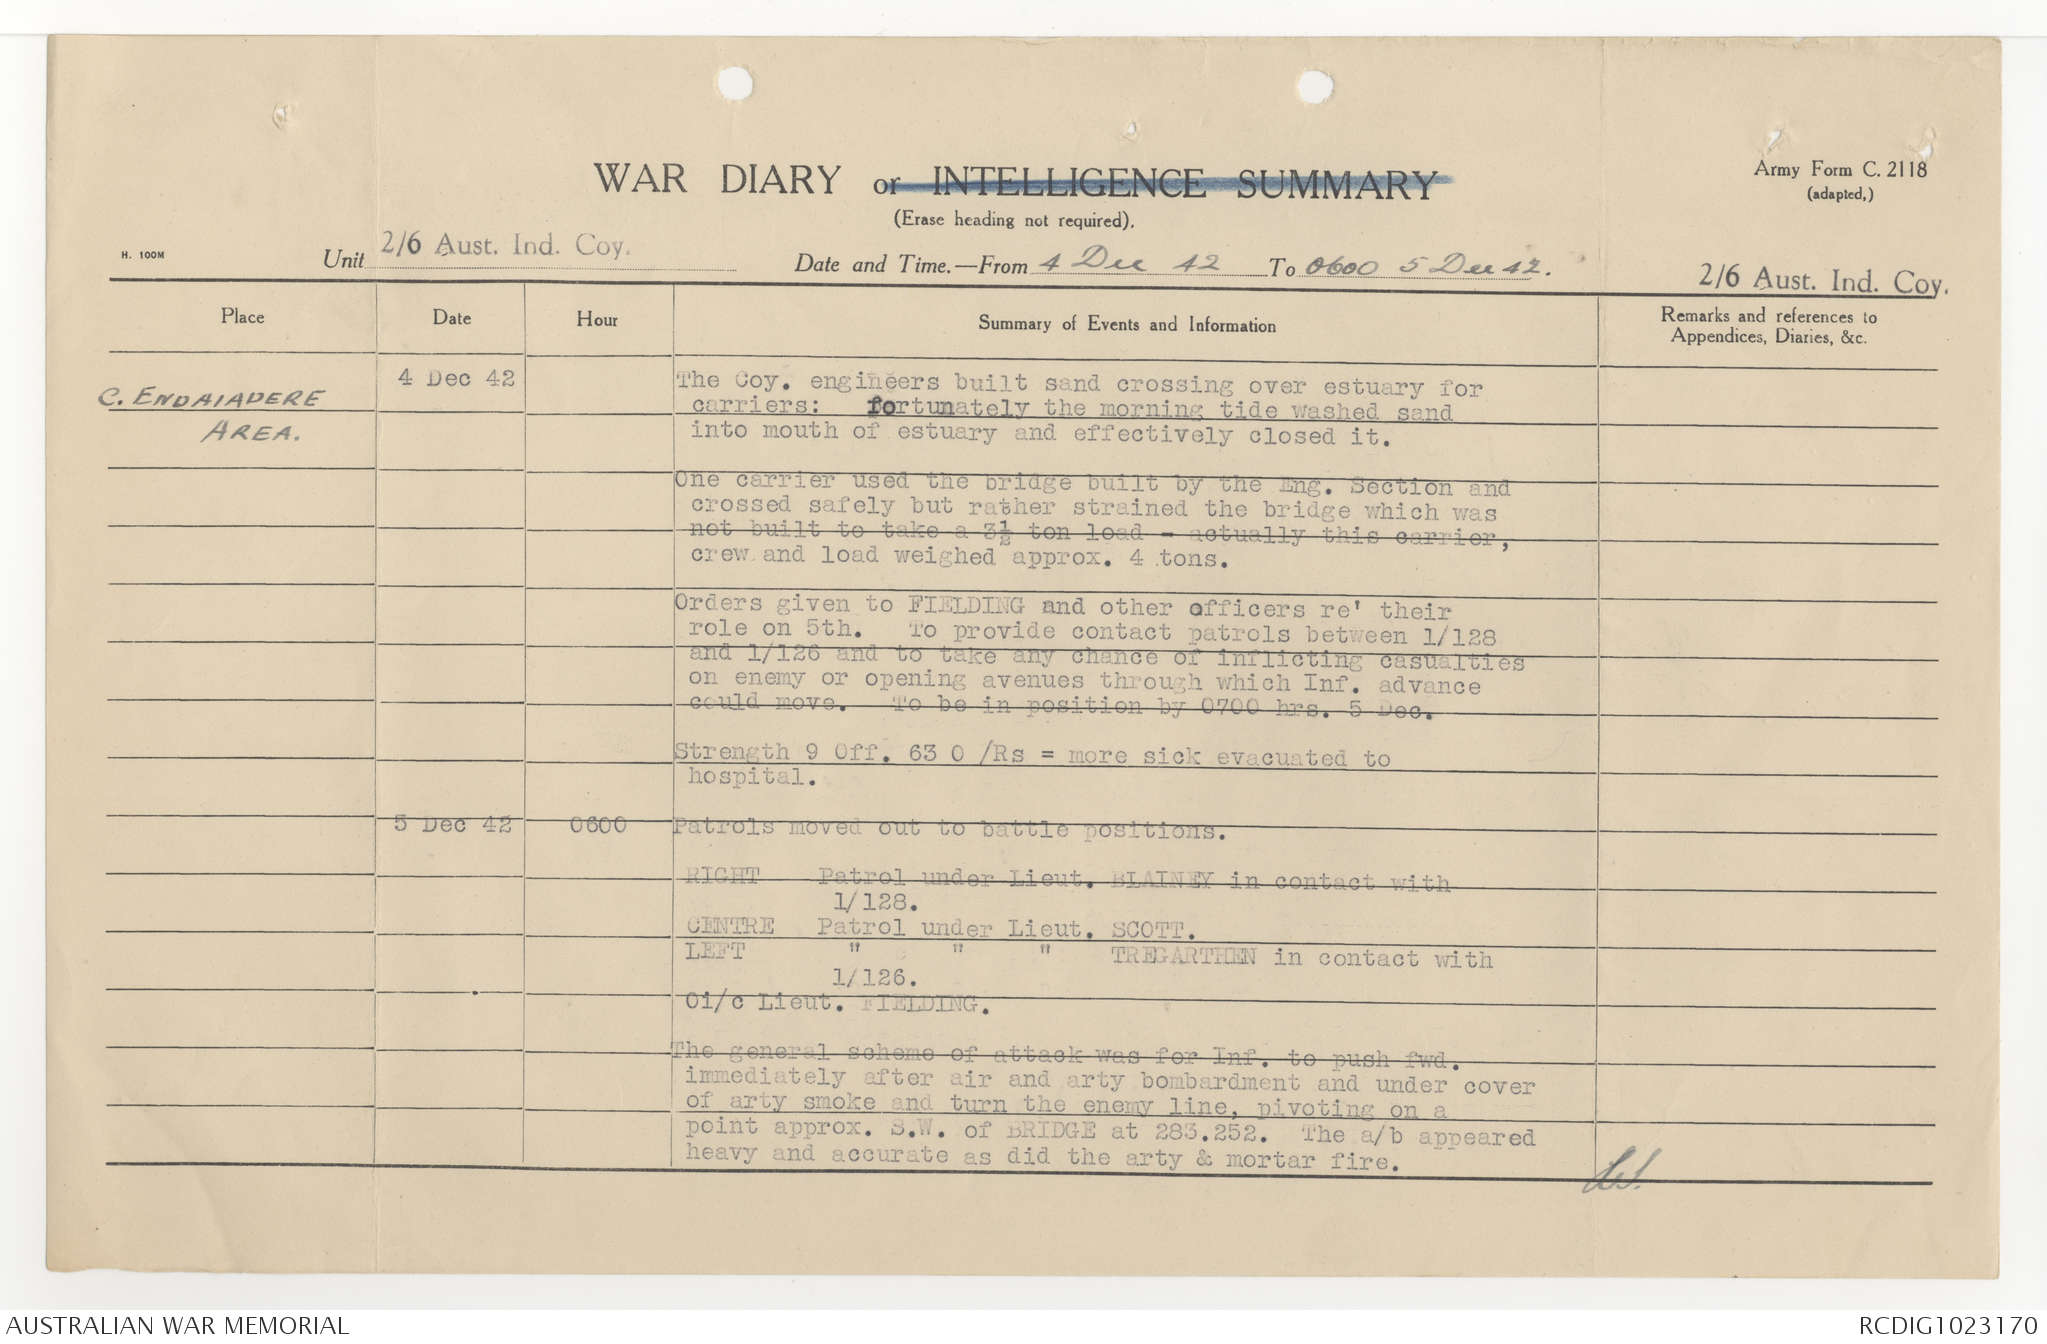 WAR DIARY or INTELLIGENCE SUMMARY
(Erase heading not required).
Army Form C. 2118
(adapted.)
H. 100M
Unit 2/6 Aust. Ind. Coy.
Date and Time.—From 4 Dec 42 To 0600 5 Dec 42.
2/6 Aust. Ind. Coy.
Place Date Hour Summary of Events and Information Remarks and references to
Appendices, Diaries, &c.
C. ENDAIADERE
AREA.
4 Dec 42 The Coy. engineers built sand crossing over estuary for
carriers: fortunately the morning tide washed sand
into mouth of estuary and effectively closed it.
One carrier used the bridge built by the Eng. Section and
crossed safely but rather strained the bridge which was
not built to take a 3½ ton load - actually this carrier,
crew and load weighed approx. 4 tons.
Orders given to FIELDING and other officers re' their
role on 5th. To provide contact patrols between 1/128
and 1/126 and to take any chance of inflicting casualties
on enemy or opening avenues through which Inf. advance
could move. To be in position by 0700 hrs. 5 Dec.
Strength 9 Off. 63 O /Rs = more sick evacuated to
hospital.
5 Dec 42 0600 Patrols moved out to battle positions.
RIGHT Patrol under Lieut. BLAINEY in contact with
1/128.
CENTRE Patrol under Lieut. SCOTT.
LEFT " " " TREGARTHEN in contact with
1/126.
Oi/c Lieut. FIELDING.
The general scheme of attack was for Inf. to push fwd.
immediately after air and arty bombardment and under cover
of arty smoke and turn the enemy line, pivoting on a
point approx. S.W. of BRIDGE at 283.252. The a/b appeared
heavy and accurate as did the arty & mortar fire.
AUSTRALIAN WAR MEMORIAL
RCDIG1023170